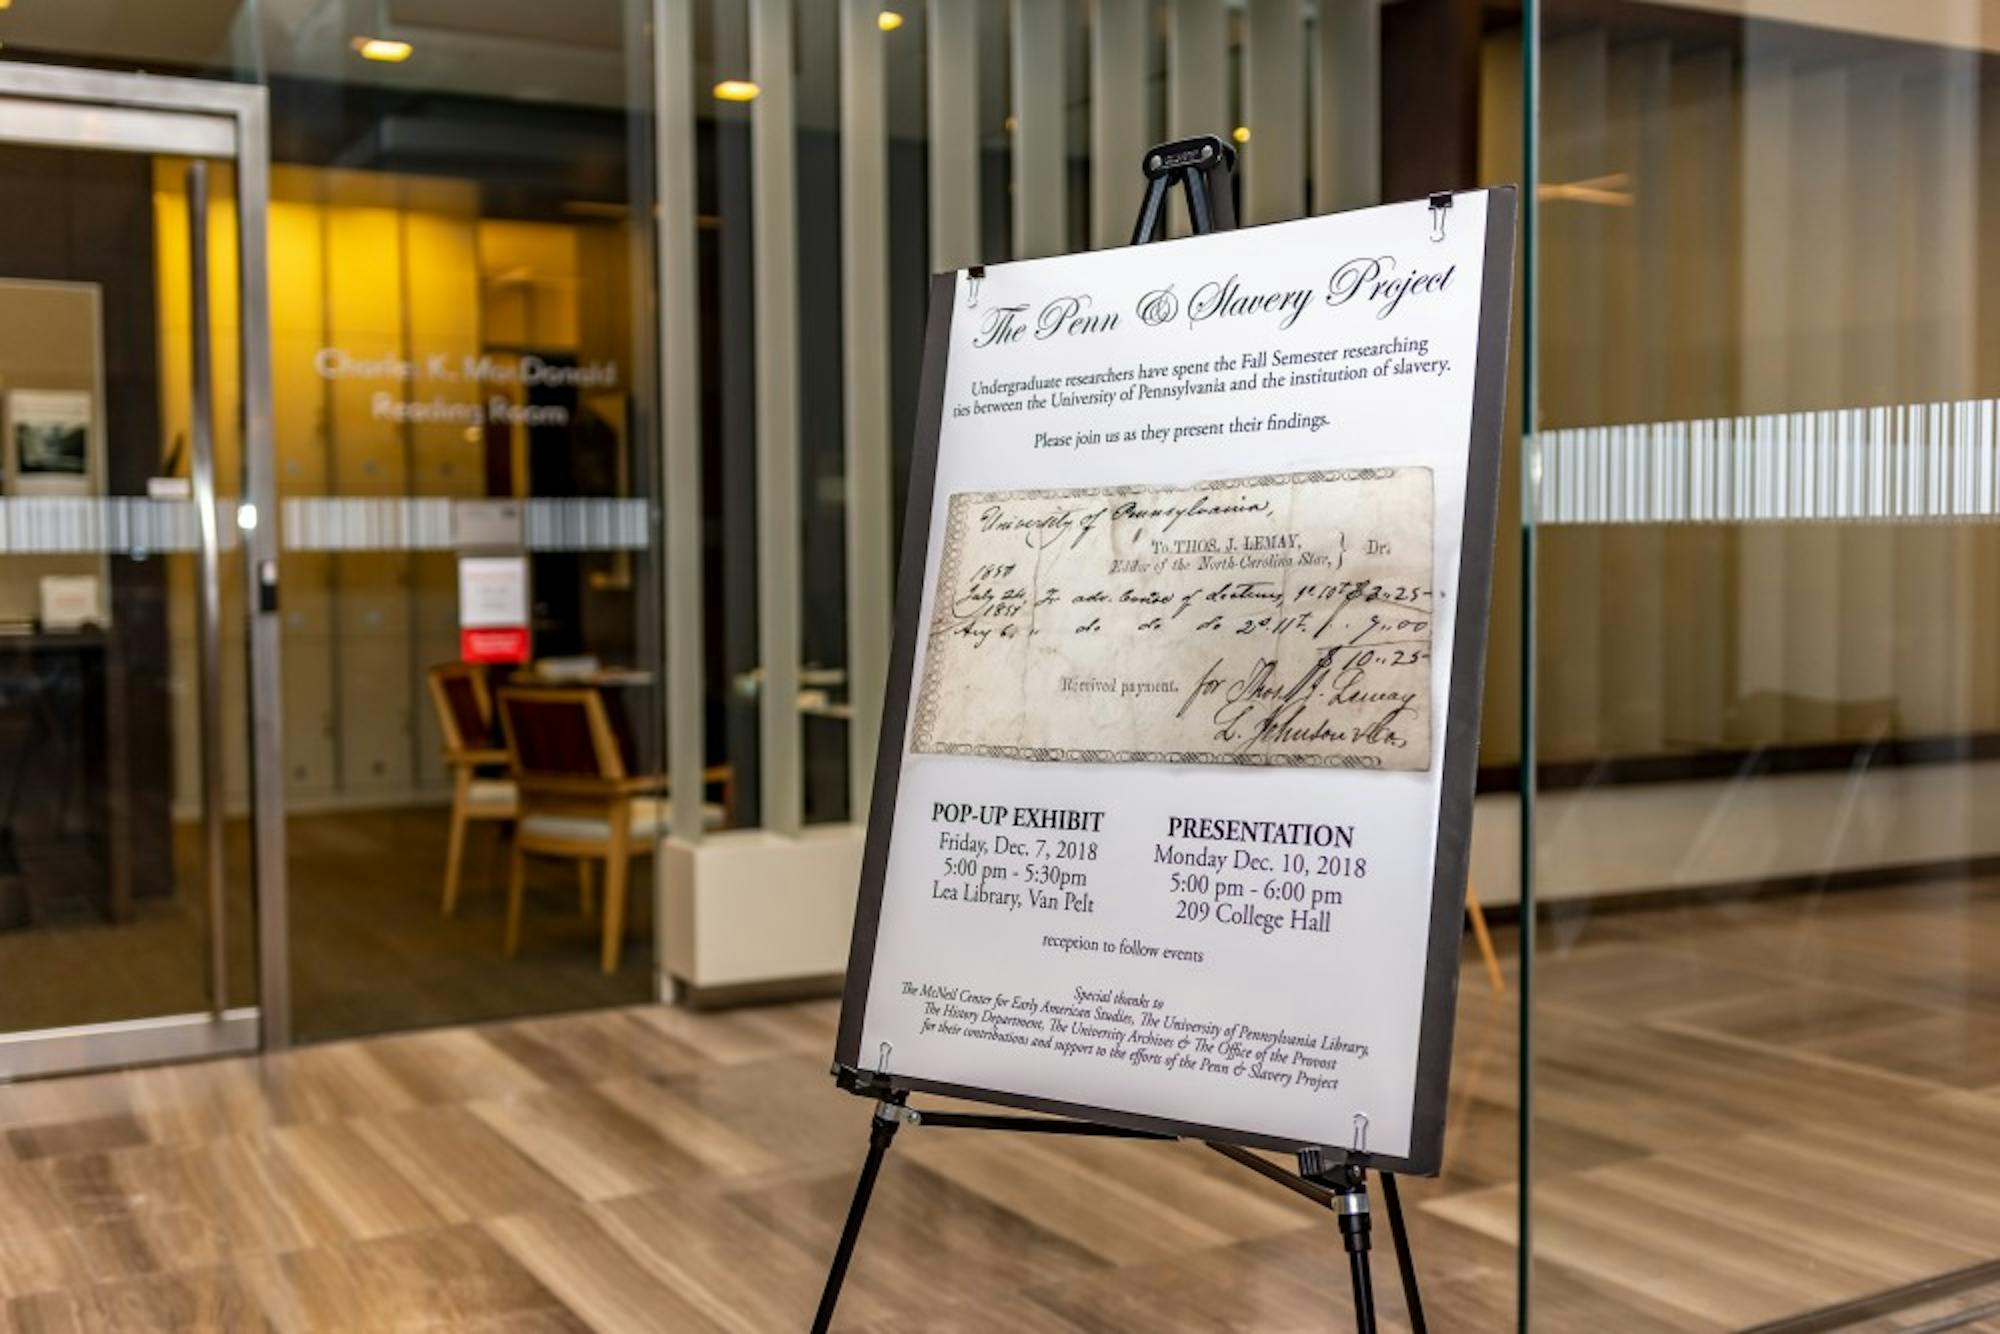 Charles K. MacDonald
Reading Room
The Penn & Slavery Project
Undergraduate researchers have spent the Fall Semester researching
ties between the University of Pennsylvania and the institution of slavery.
Please join us as they present their findings.
University of Pennsylvania,
To THOS. J. LEMAY,
Editor of the North-Carolina Star, } Dr.
1850
July 24, To adv. Course of Lectures, $3..25
1851
Aug 6 " do do do 7..00
$10..25
Received payment, for Thos. J. Lemay
L. Johnson & Co,
POP-UP EXHIBIT
Friday, Dec. 7, 2018
5:00 pm - 5:30pm
Lea Library, Van Pelt
PRESENTATION
Monday Dec. 10, 2018
5:00 pm - 6:00 pm
209 College Hall
reception to follow events
Special thanks to
The McNeil Center for Early American Studies, The University of Pennsylvania Library,
The History Department, The University Archives & The Office of the Provost
for their contributions and support to the efforts of the Penn & Slavery Project